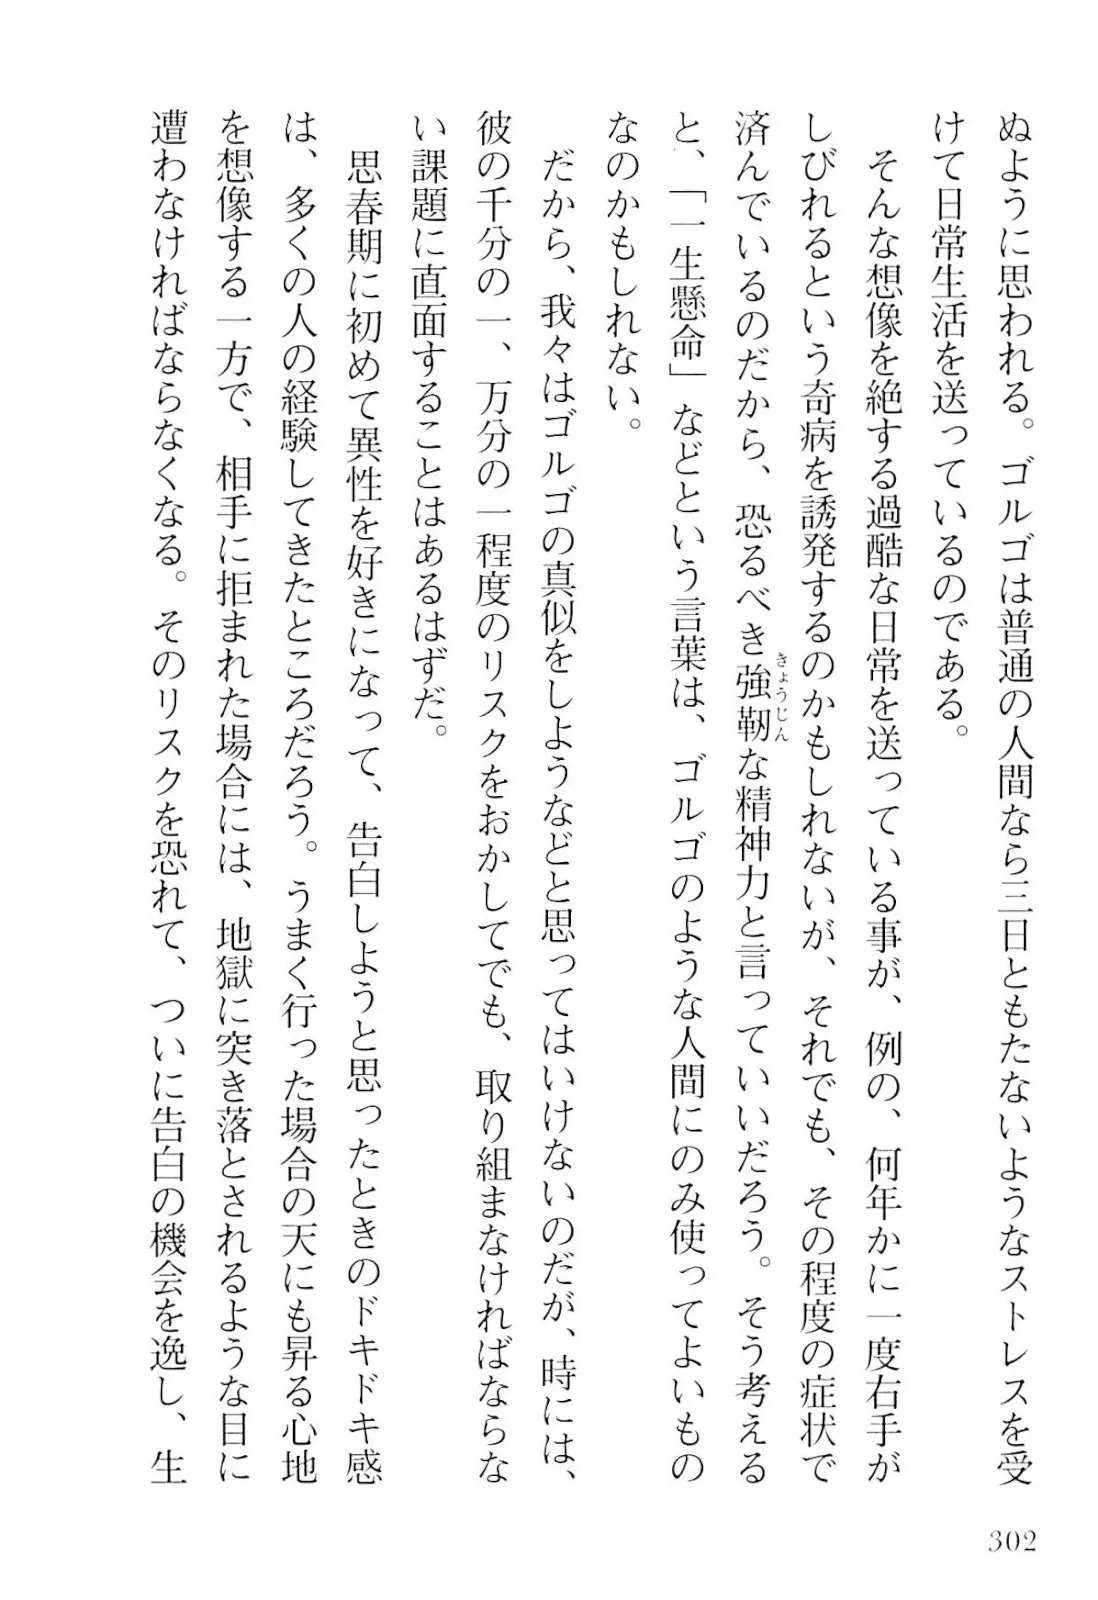 ぬように思われる。ゴルゴは普通の人間なら三日ともたないようなストレスを受
けて日常生活を送っているのである。
そんな想像を絶する過酷な日常を送っている事が、例の、何年かに一度右手が
しびれるという奇病を誘発するのかもしれないが、それでも、その程度の症状で
済んでいるのだから、恐るべき強靭な精神力と言っていいだろう。そう考える
きょうじん
と、「一生懸命」などという言葉は、ゴルゴのような人間にのみ使ってよいもの
なのかもしれない。
だから、我々はゴルゴの真似をしようなどと思ってはいけないのだが、時には、
彼の千分の一、万分の一程度のリスクをおかしてでも、取り組まなければならな
い課題に直面することはあるはずだ。
思春期に初めて異性を好きになって、告白しようと思ったときのドキドキ感
は、多くの人の経験してきたところだろう。うまく行った場合の天にも昇る心地
を想像する一方で、相手に拒まれた場合には、地獄に突き落とされるような目に
遭わなければならなくなる。そのリスクを恐れて、ついに告白の機会を逸し、生
302